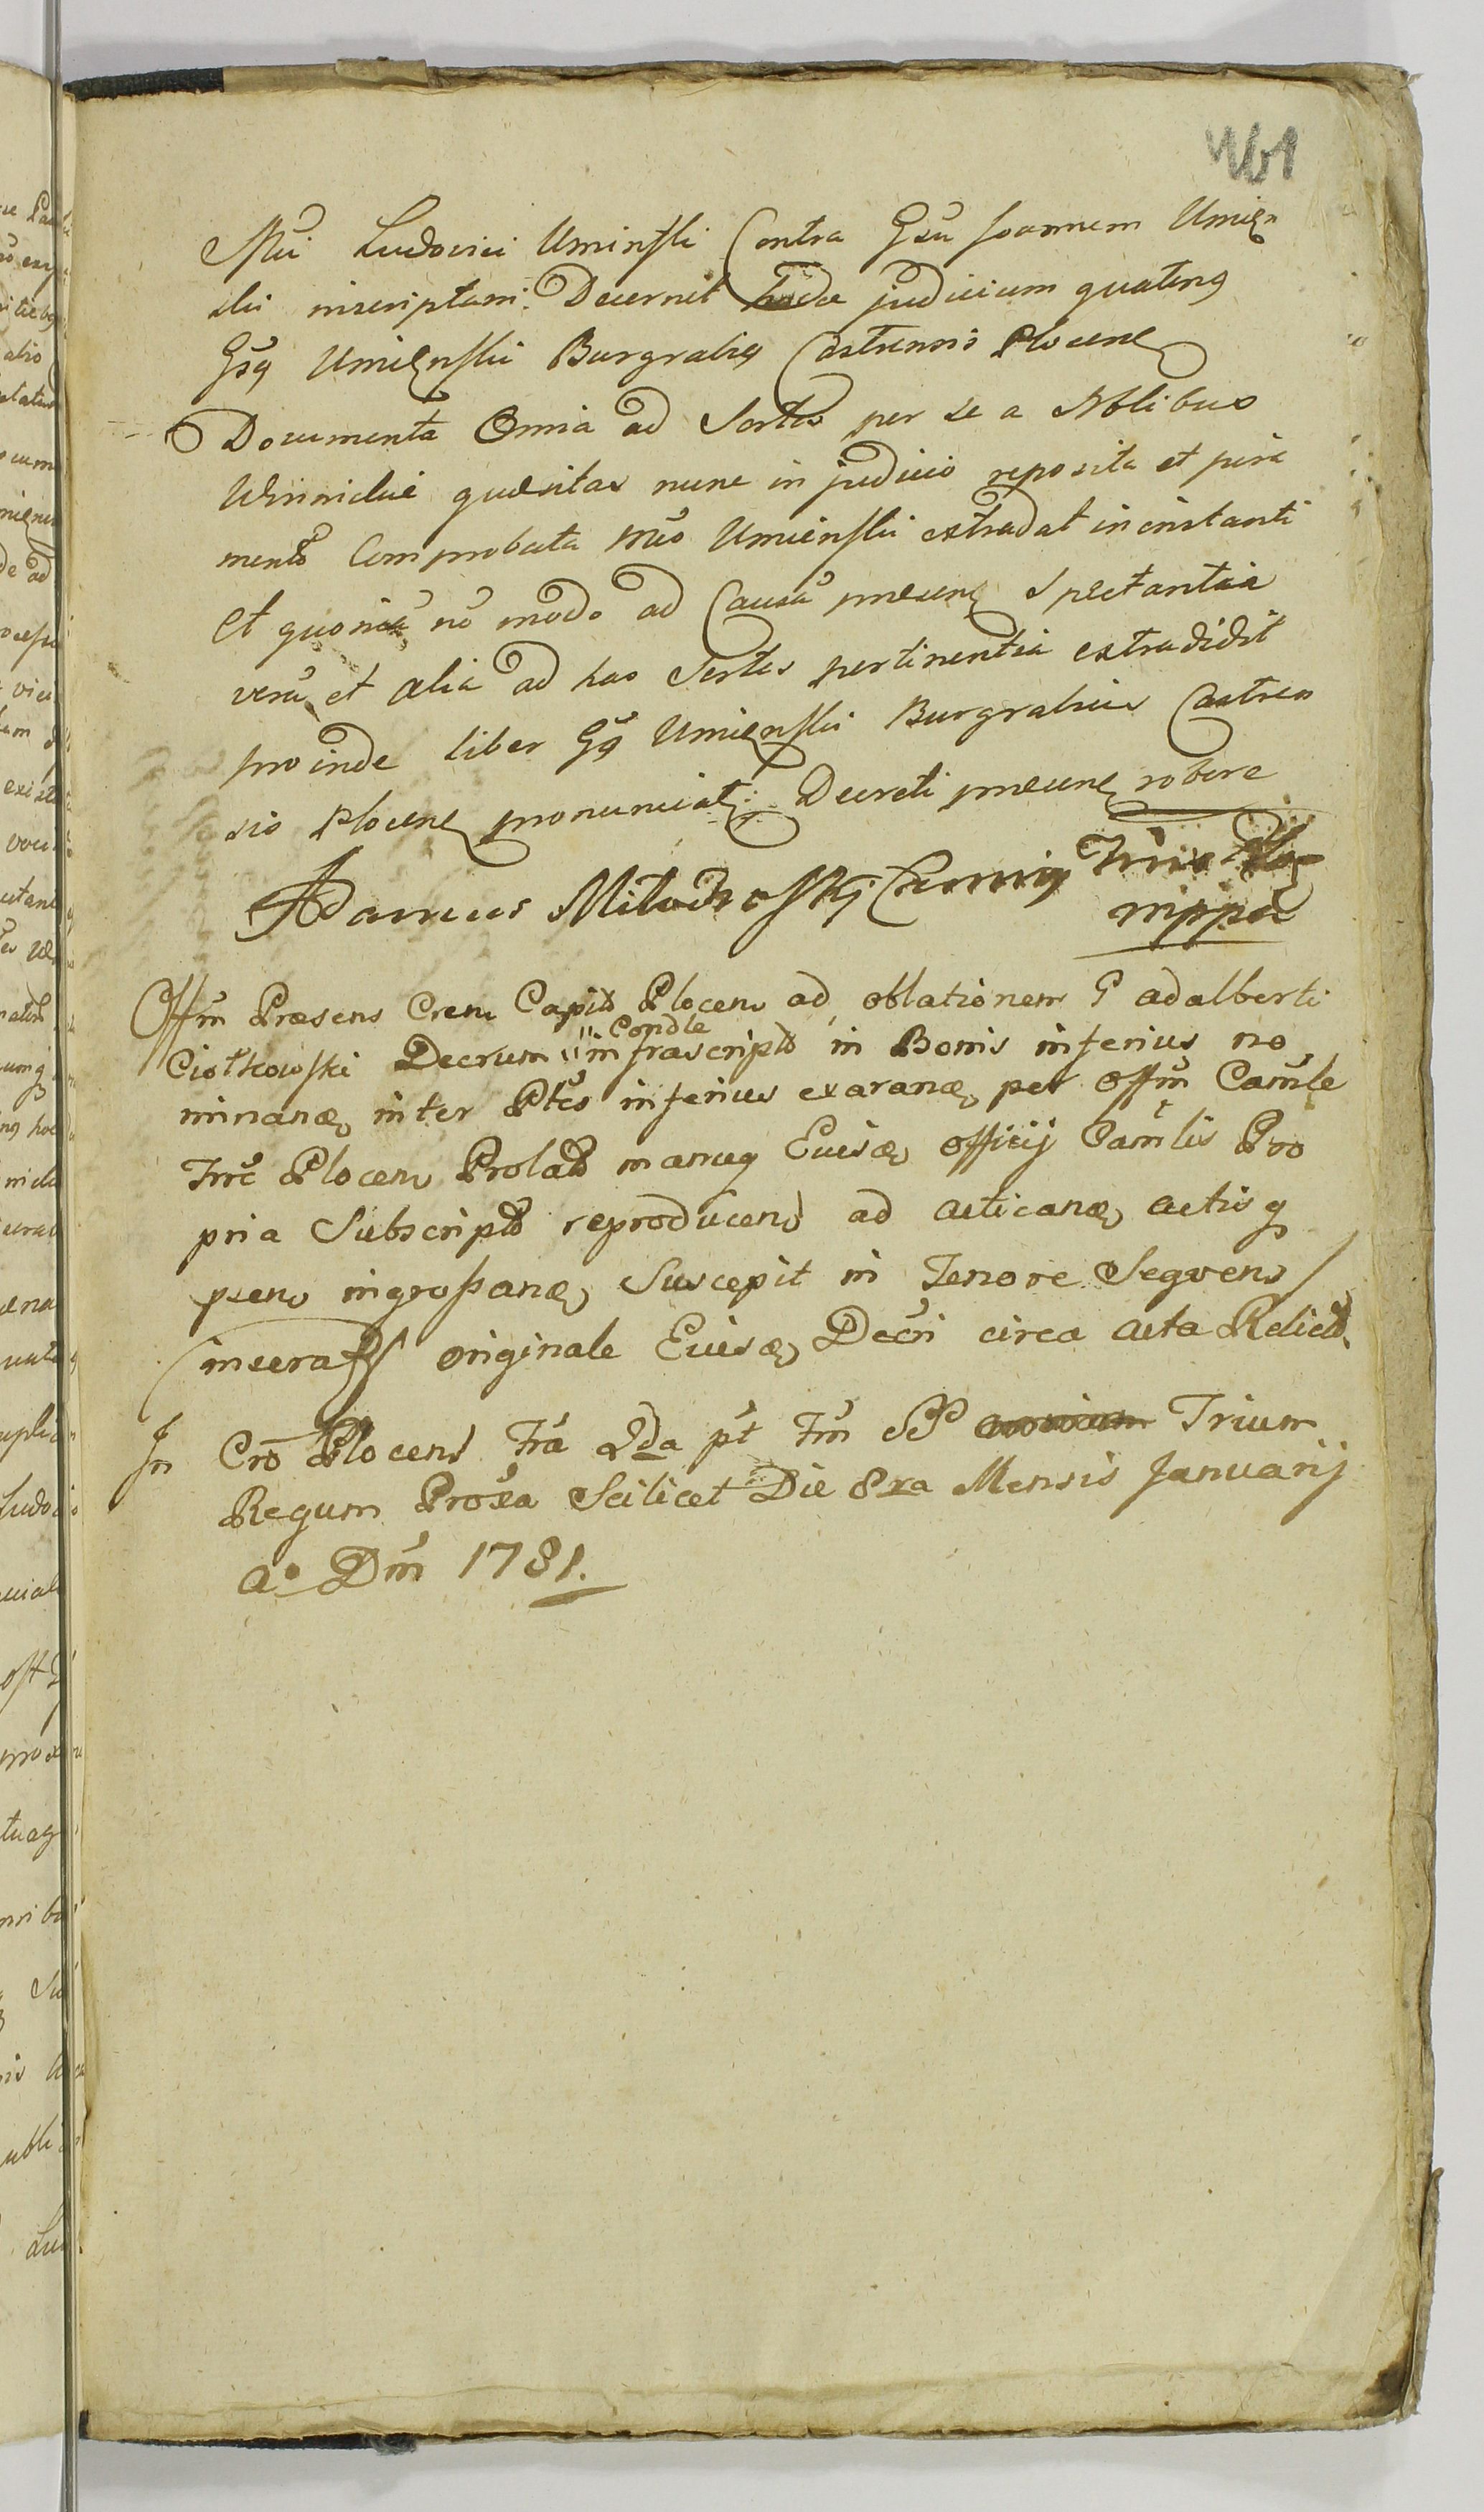 461
Mci Ludovici Uminski Contra Gsū Joannem Umień
ski inscriptam. Decernit judicium quateng
Gsg Umięnski Burgrabig Castrensis Plocens
Documenta Omnia ad Sortes per se a Nblibus
quæsitas nunc in judicio reposita et jura
mento Comprobata Mco Umienski extradat in instanti
et quoniā nō modo ad Causā præsens Spectantia
verū et alia ad has Sortes pertinentia extradidit
proinde liber Gsg Umięnski Burgrabius Castren
sis Plocens pronunciat; Decreti præsens robore
Adamus Camrig Trris Ploc
mppa
Offm Præsens Crens Capit Plocens ad oblationem G adalberti
Condle
Ciołkowski Decrum "infrascript in Bonis inferius no
minanæ inter Ptes inferius exaranæ per Offm Camle
Trrē Plocens Prolat manug Eiusæ officij Camlis Pro
pria Subscript reproducens ad acticanæ actisg
psens ingrossanæ Suscepit in Tenore Seqvens /
(inserat/ originale Eiusæ Decri circa acta Relict.
In Cro Plocens Fra 2da pt Fm SS Trium
Regum Proxa Scilicet Die 8va Mensis Januarij
Ao Dni 1781.